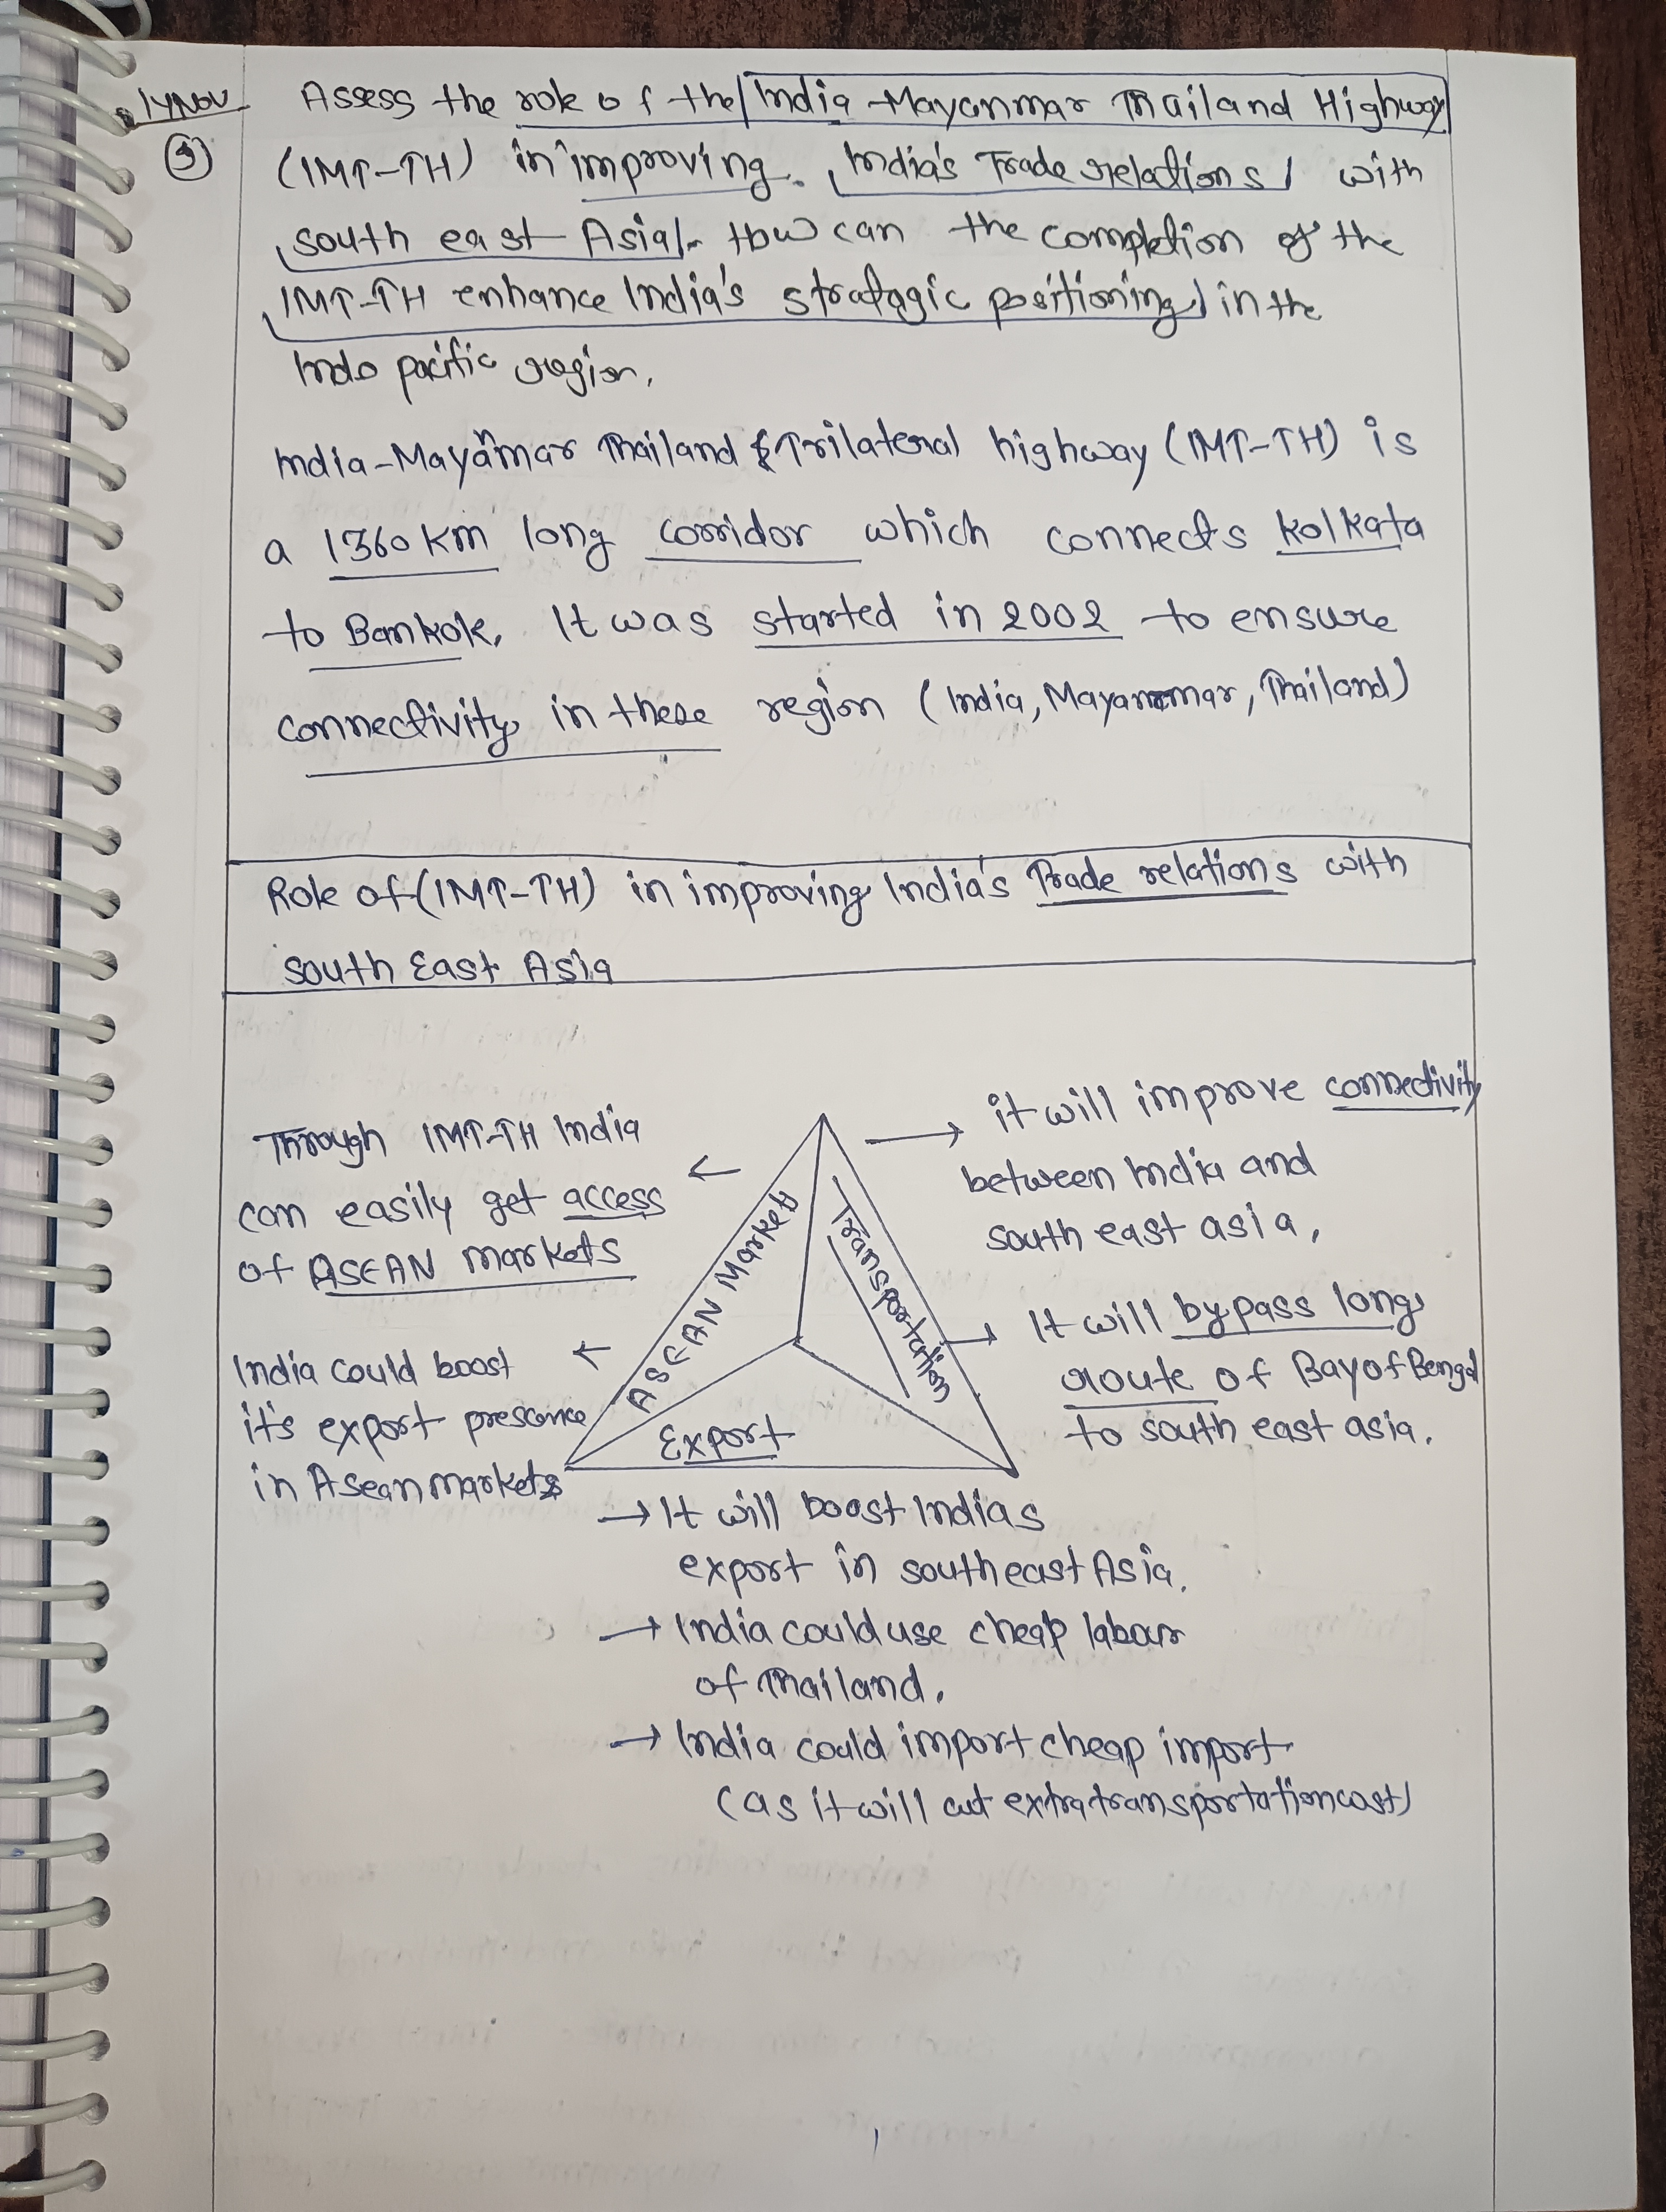 14Nov
Assess the role of the India-Mayanmar Thailand Highway
(5)
(IMT-TH) in improving. India's Trade relations with
south east Asia. How can the completion of the
IMT-TH enhance India's stratagic positioning in the
Indo pacific region.
India-Mayanmar Thailand & Trilateral highway (IMT-TH) is
a 1360 km long corridor which connects kolkata
to Bankok. It was started in 2002 to ensure
connectivity in these region (India, Mayanmar, Thailand)
Role of (IMT-TH) in improving India's Trade relations with
south East Asia
Through IMT-TH India
can easily get access
of ASEAN markets
India could boost
it's export presence
in Asean markets
ASEAN Markets
Transportation
Export
→ it will improve connectivity
between India and
south east asia.
→ It will bypass long
route of Bay of Bengal
to south east asia.
→ It will boost Indias
export in southeast Asia.
→ India could use cheap labour
of Thailand.
→ India could import cheap import
(as it will cut extra transportation cost)